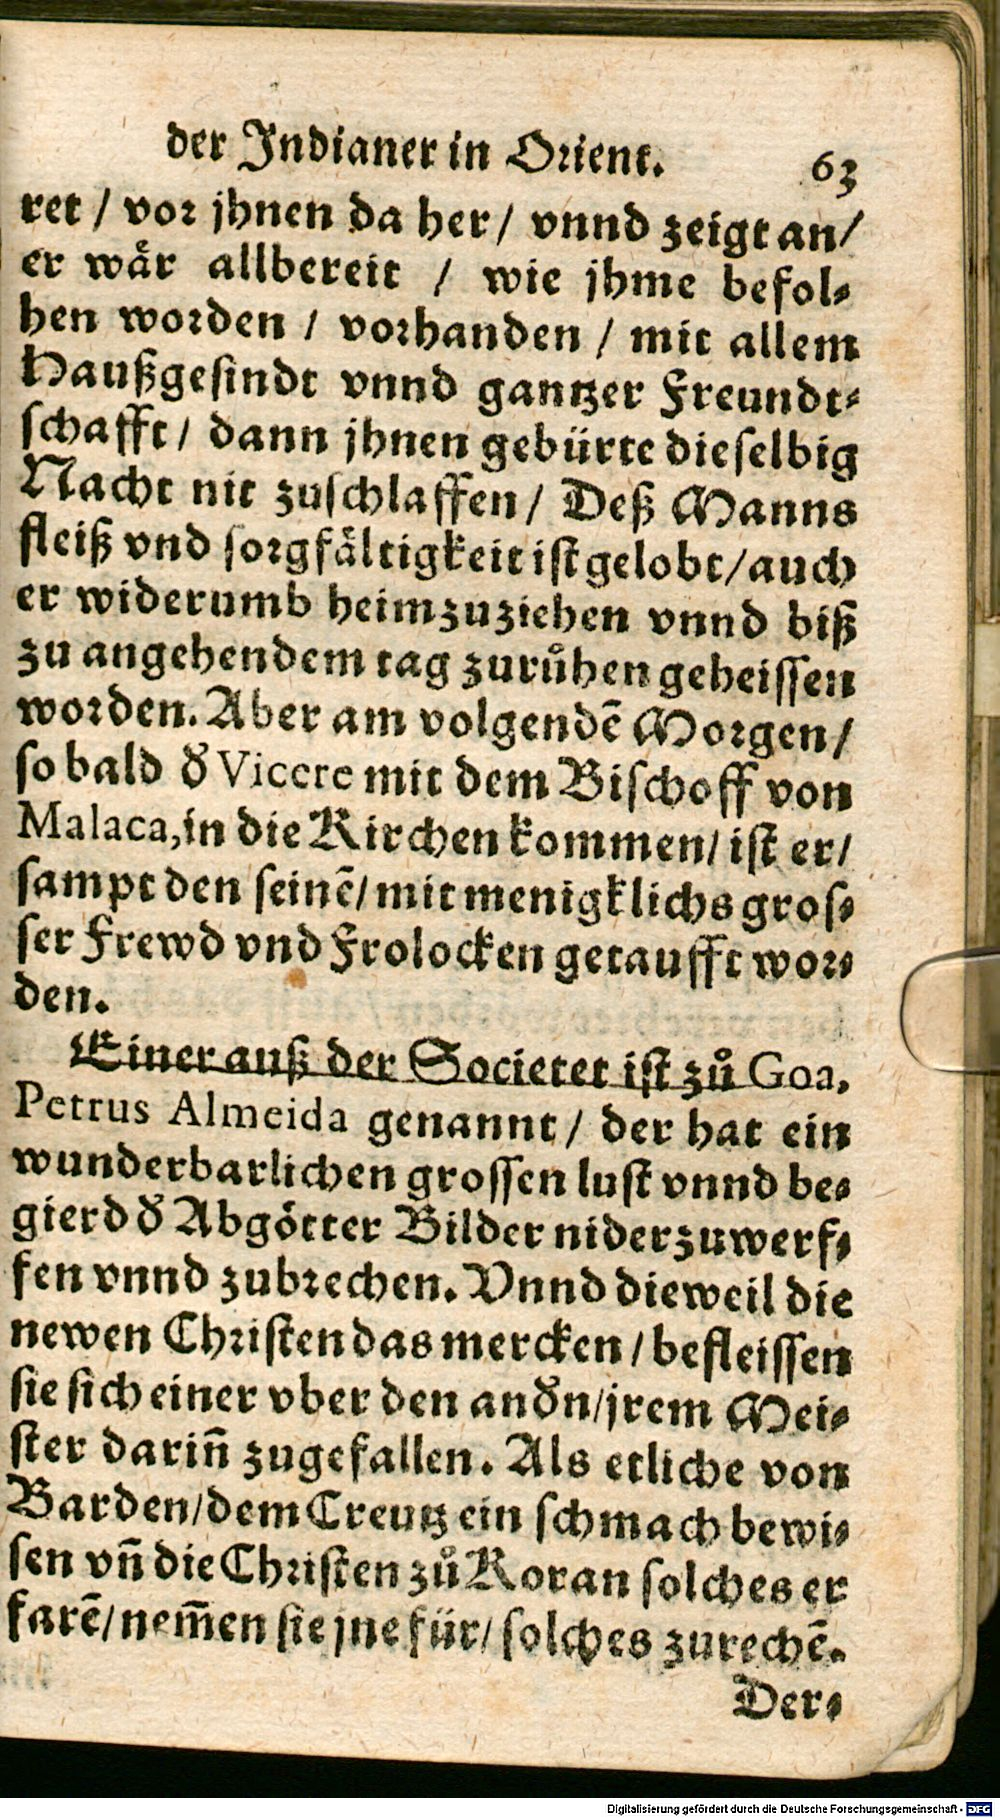 der Indianer in Orient. 63
ret / vor jhnen da her / vnnd zeigt an /
er wår allbereit / wie jhme befol⸗
hen worden / vorhanden / mit allem
Haußgesindt vnnd gantzer Freundt⸗
schafft / dann jhnen gebürte dieselbig
Nacht nit zuschlaffen / Deß Manns
fleiß vnd sorgfältigkeit ist gelobt / auch
er widerumb heimzuziehen vnnd biß
zu angehendem tag zurůhen geheissen
worden. Aber am volgendẽ Morgen /
so bald ð Vicere mit dem Bischoff von
Malaca, in die Kirchen kommen / ist er /
sampt den seinẽ / mit menigklichs gros⸗
ser Frewd vnd Frolocken getaufft wor⸗
den.
Einer auß der Societet ist zů Goa,
Petrus Almeida genannt / der hat ein
wunderbarlichen grossen lust vnnd be⸗
gierd ð Abgötter Bilder niderzuwerf⸗
fen vnnd zubrechen. Vnnd dieweil die
newen Christen das mercken / befleissen
sie sich einer vber den anðn / jrem Mei⸗
ster dariñ zugefallen. Als etliche von
Barden / dem Creutz ein schmach bewi⸗
sen vñ die Christen zů Koran solches er
farẽ / nem̃en sie jne für / solches zurechẽ.
Der⸗
Digitalisierung gefördert durch die Deutsche Forschungsgemeinschaft - DFG